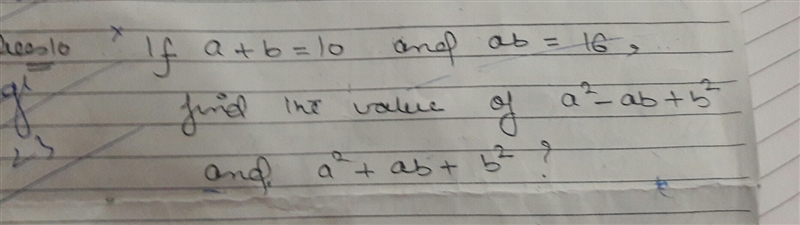 * If a + b = 10 and ab = 16,
find the value of a² - ab + b²
and a² + ab + b² ?